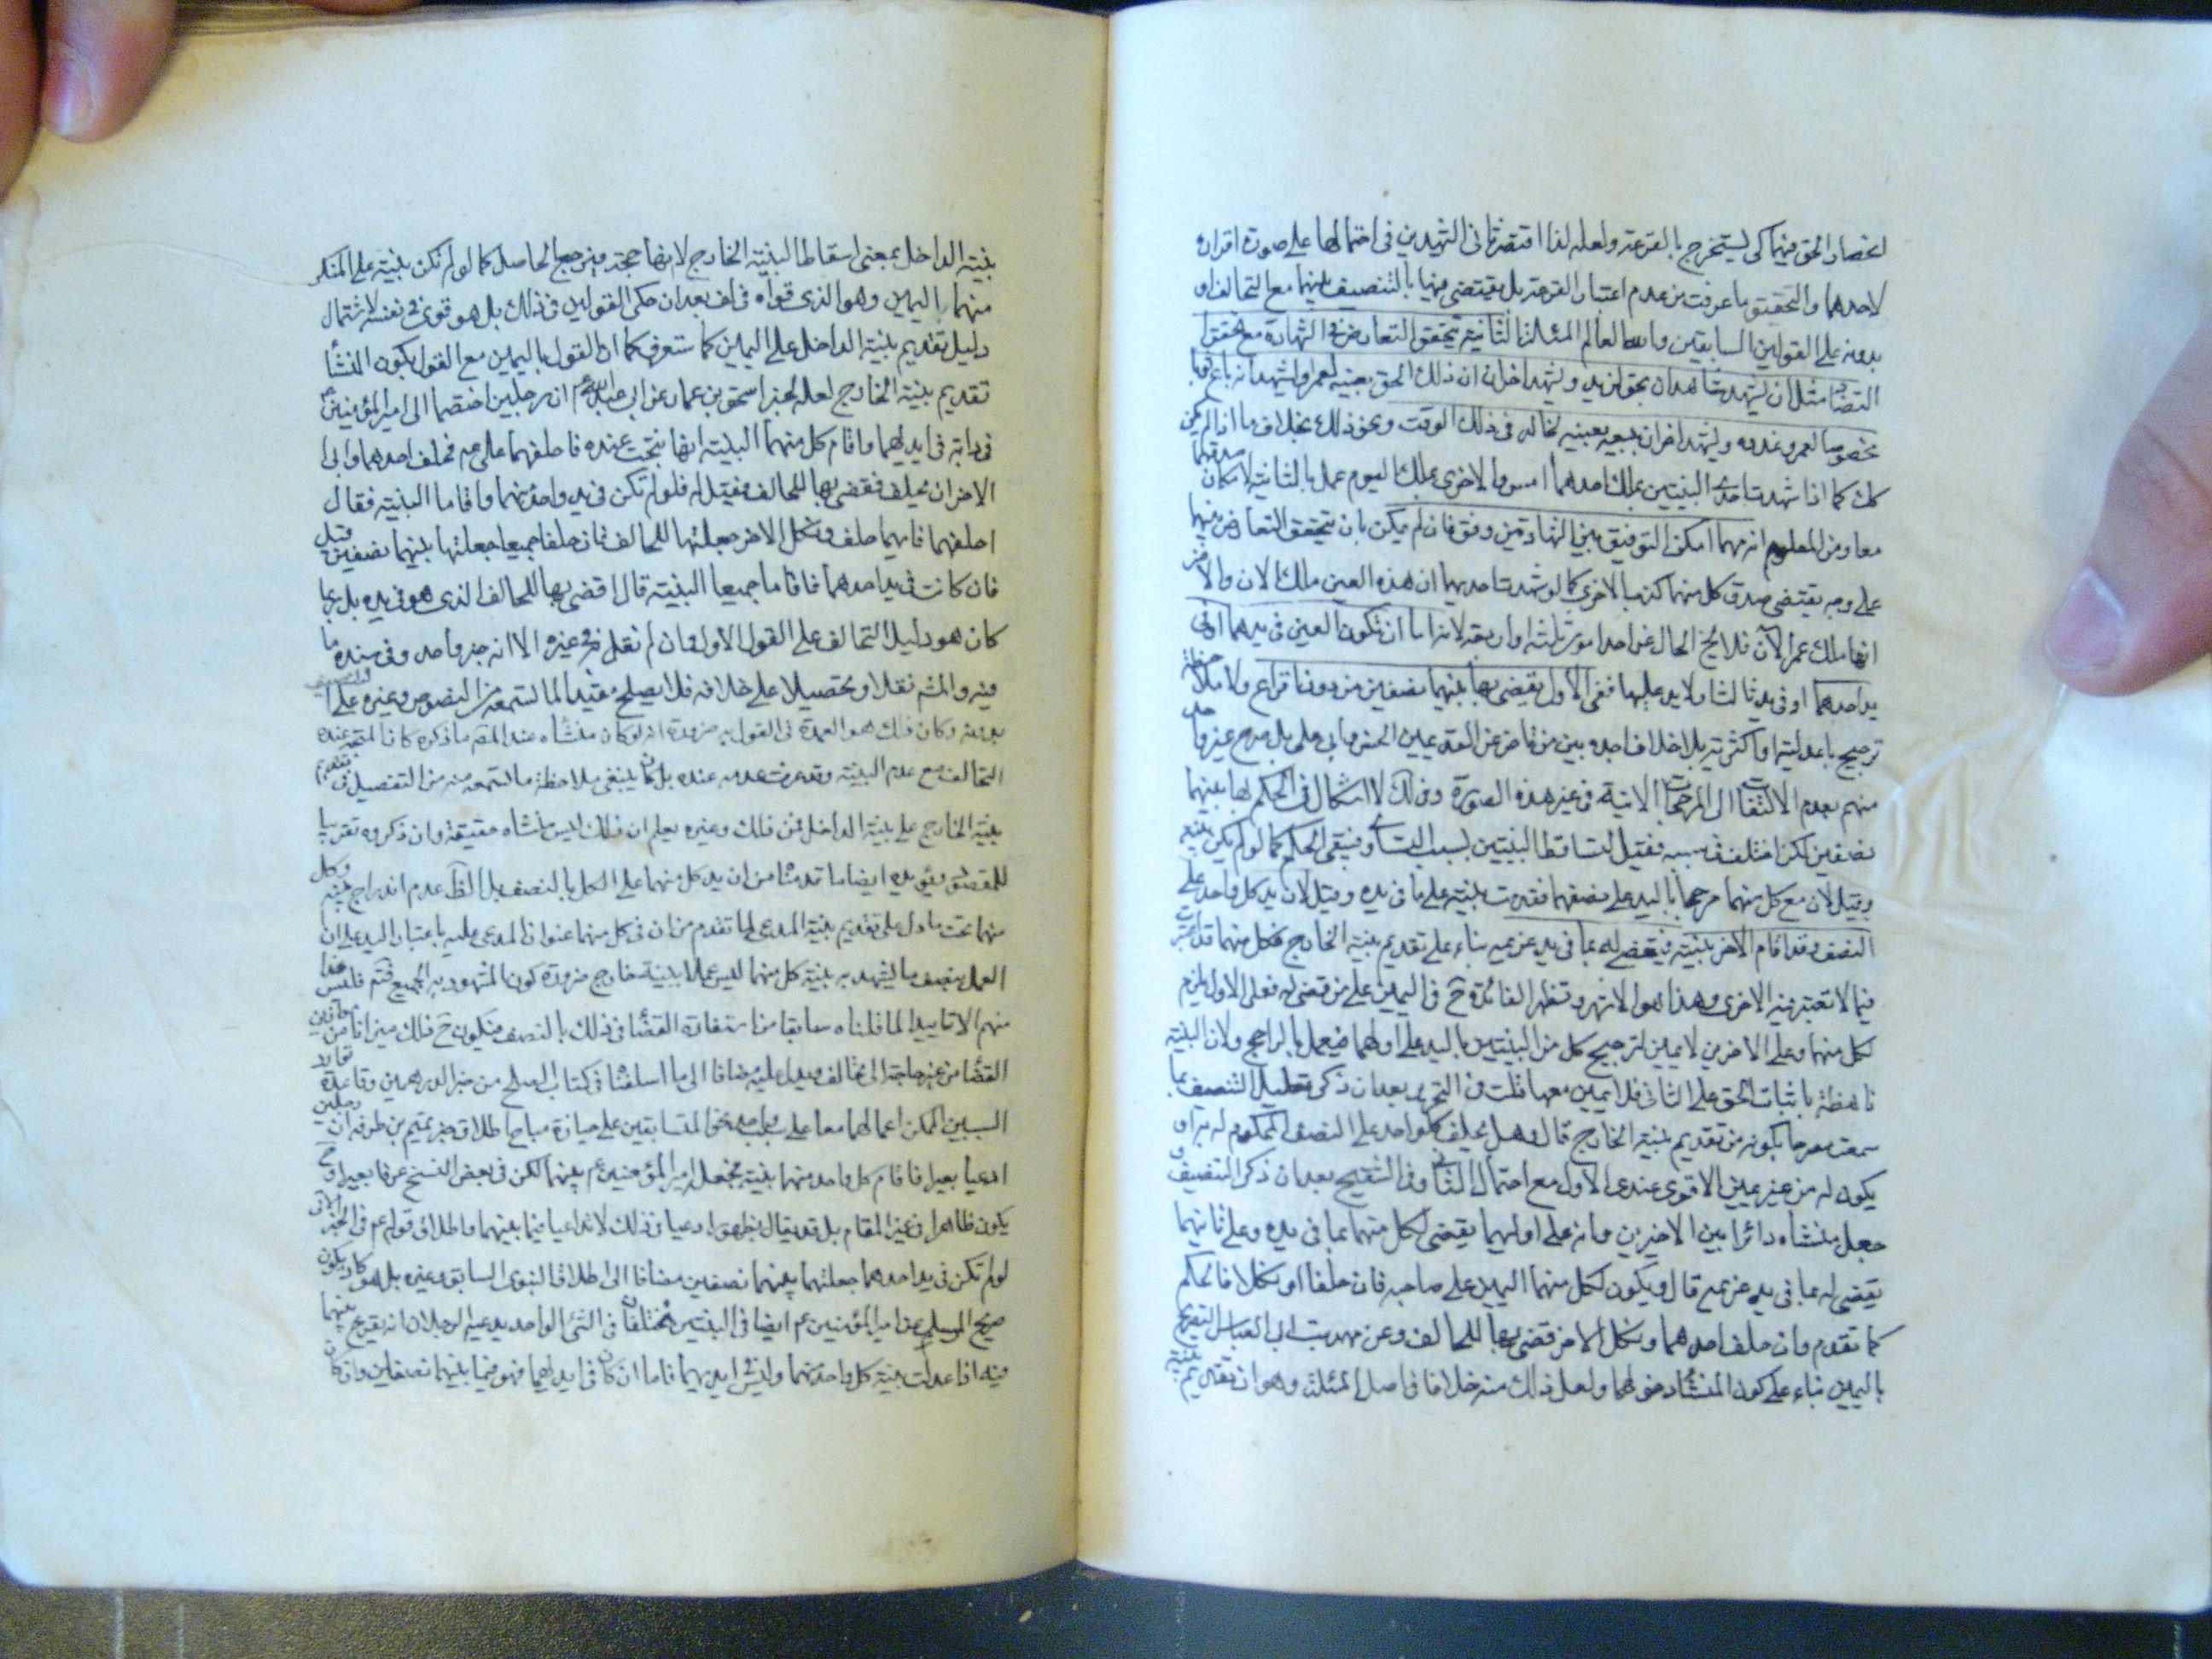 انحصار الحق فيهما كى يستخرج بالقرعة ولعله لذا اقتصر ثانى الشهيدين فى احتمالها على صورة اقراره
لاحدهما والتحقيق ما عرفت من عدم اعتبار القرعة بل يقتضى فيها بالتنصيف بينهما مع التحالف او
بدونه على القولين السابقين والله العالم المسئلة الثانية يتحقق التعارض فى الشهادة مع تحقق
التضاد مثل ان يشهد شاهدان بحق لزيد ويشهد اخران ان ذلك الحق بعينه لعمرو او يشهد انه باع ثوبا
مخصوصا لعمرو غدوه ويشهد اخران ببيعه بعينه لخالد فى ذلك الوقت ونحو ذلك بخلاف ما اذا لم يكن
كك كما اذا شهدت احدى البينتين بملك احدهما امس والاخرى بملك اليوم عمل بالثانية لامكان صدقهما
معا ومن المعلوم انه مهما امكن التوفيق بين الشهادتين وفق فان لم يمكن بان يتحقق التعارض بينهما
على وجه يقتضى صدق كل منهما كذب الاخرى كما لو شهدت احديهما ان هذه العين ملك الان والاخرى
انها ملك عمرو الآن فلا يخ الحال عن احد امور ثلثة او اربعة لانه اما ان تكون العين فى يدهما او فى
يد احدهما او فى يد ثالث او لا يد عليها ففى الاول يقضى بها بينهما نصفين من دون اقراع ولا ملاحظة
ترجيح باعدلية او اكثرية بلا خلاف اجده بين من تاخر عن القديمين الحسن وابى على بل صرح غير واحد
منهم بعدم الالتفات الى المرجحات الاتية فى غير هذه الصورة وفى لك لا اشكال فى الحكم لها بينهما
نصفين لكن اختلف فى سببه فقيل لتساقط البينتين بسبب التساوى فيبقى الحكم كما لو لم يكن بينة
وقيل لان مع كل منهما مرجحا باليد على نصفها فقدمت بينته على ما فى يده وقيل لان يد كل واحد على
النصف وقد اقام الاخر بينة فيقضى له بما فى يد غريمه بناء على تقديم بينة الخارج فكل منهما قد اعتبرت
فيما لا تعتبر فيه الاخرى وهذا هو الاشهر وتظهر الفائدة ح فى اليمين على من قضى له فعلى الاول يلزم
لكل منهما وعلى الاخرين لا يمين لترجيح كل من البينتين باليد على اولهما فيعمل بالراجح ولان البينة
ناهضة باثبات الحق على الثانى فلا يمين معها قلت وفى التحرير بعد ان ذكر تعليل التنصيف بما
سمعت مصرحا بكونه من تقديم بينة الخارج قال وهل يحلف كل واحد على النصف المحكوم له به او
يكون له من غير يمين الاقوى عندى الاول مع احتمال الثانى وفى التنقيح بعد ان ذكر التنصيف و
جعل منشاه دائرا بين الاخيرين وانه على اوليهما يقضى لكل منهما بما فى يده وعلى ثانيهما
يقضى له بما فى يد غريمه قال ويكون لكل منهما اليمين على صاحبه فان حلفا او نكلا فالحكم
كما تقدم وان حلف احدهما ونكل الاخر قضى بها للحالف وعن مهذب ابى العباس التصريح
باليمين بناء على كون المنشاء دخولهما ولعل ذلك منه خلافا فى اصل المسئلة وهو ان تقديم بينة
بينة الداخل بمعنى اسقاط البينة الخارج لانها حجة فيرجع الحاصل كما لو لم تكن بينة على المنكر
منهما اليمين وهو الذى قواه فى لف بعد ان حكى القولين فى ذلك بل هو قوى فى نفسه لاشتمال
دليل تقديم بينة الداخل على اليمين كما ستعرف كما ان القول باليمين مع القول بكون المنشأ
تقديم بينة الخارج لعله لخبر اسحق بن عمار عن ابى عبدالله ع ان رجلين اختصما الى امير المؤمنين ع
فى دابة فى ايديهما واقام كل منهما البينة انها نتجت عنده فاحلفهما على ع فحلف احدهما وابى
الاخر ان يحلف فقضى بها للحالف فقيل له فلو لم تكن فى يد واحد منهما واقاما البينة فقال
احلفهما فايهما حلف ونكل الاخر جعلتها للحالف فان حلفا جميعا جعلتها بينهما نصفين قيل
فان كانت فى يد احدهما فاقاما جميعا البينة قال اقضى بها للحالف الذى هو فى يده بل ربما
كان هو دليل التحالف على القول الاول وان لم نقل فى غيره الا انه خبر واحد وفى سنده ما
فيه والمش نقلا وتحصيلا على خلافه فلا يصلح مقيدا لما تستمعه من النصوص وغيره على
بدونه وكان ذلك هو العمدة فى القول به ضرورة انه لو كان منشاه عند المصم ما ذكره كان المتجه عنده
التحالف مع عدم البينة وقد عرفت عدمه عنده بل كان ينبغى ملاحظة ما تسمعه منه من التفصيل فى تقديم
بينة الخارج على بينة الداخل فمن ذلك وغيره يعلم ان ذلك ليس منشاه حقيقة وان ذكروه تقريبا
للمقصود ويؤيده ايضا ما قدمنا من ان يد كل منهما على الكل بالنصف بل الظ عدم اندراج بينة وكل
منهما تحت ما دل على تقديم بينة المدعى لما تقدم من ان فى كل منهما عنوان المدعى عليه باعتبار اليد على ان
العمل بنصف ما يشهد به بينة كل منهما ليس عملا ببينة خارج ضرورة كون المشهود به الجميع فتم فليس هذا
منهم الا تاييدا لما قلناه سابقا من استفادة القضا فى ذلك بالنصف فيكون ح ذلك ميزانا من موازين
القضا من غير حاجة الى تحالف ويدل عليه مضافا الى ما اسلفنا فى كتاب الصلح من خبر الدرهمين وقاعدة توارد
السببين الممكن اعمالهما معا على سبب واحد نحو المتسابقين على حيازة مباح اطلاق خبر تميم بن طرفة ان رجلين
ادعيا بعيرا فاقام كل واحد منهما بينة فجعل امير المؤمنين ع بينهما لكن فى بعض النسخ عرفا بعيرا وح
يكون ظاهرا فى غير المقام بل قد يقال بظهور ادعيا فى ذلك لا تداعيا فيما بينهما واطلاق قوله ع فى الخبر الاتى
لو لم تكن فى يد احدهما جعلتها بينهما نصفين مضافا الى اطلاق النبوى السابق وغيره بل هو كاد يكون
صريح المرسل عن امير المؤمنين ع ايضا فى البينتين تختلفان فى الشئ الواحد يدعيه الرجلان انه يقرع بينهما
فيه اذا عدلت بينة كل واحد منهما وليس فى ايديهما فاما ان كان فى ايديهما فهو فيما بينهما نصفان وان كان